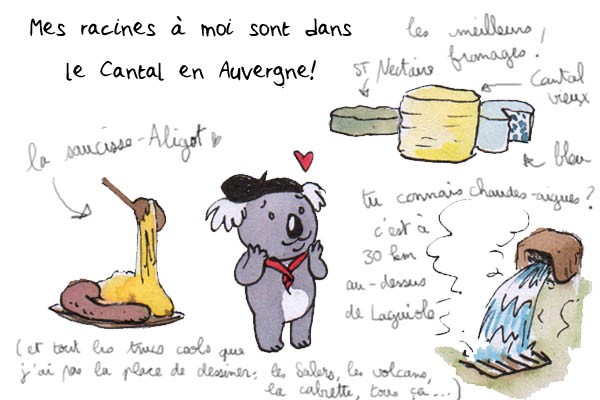 Mes racines à moi sont dans
le Cantal en Auvergne!
les meilleurs
fromages!
St Nectaire
Cantal
vieux
bleu
la saucisse-Aligot
tu connais chaudes-aigues?
c'est à
30 km
au-dessus
de Laguiole
(et tout les trucs cools que
j'ai pas la place de dessiner: les Salers, les volcans,
la cabrette, tous ça...)